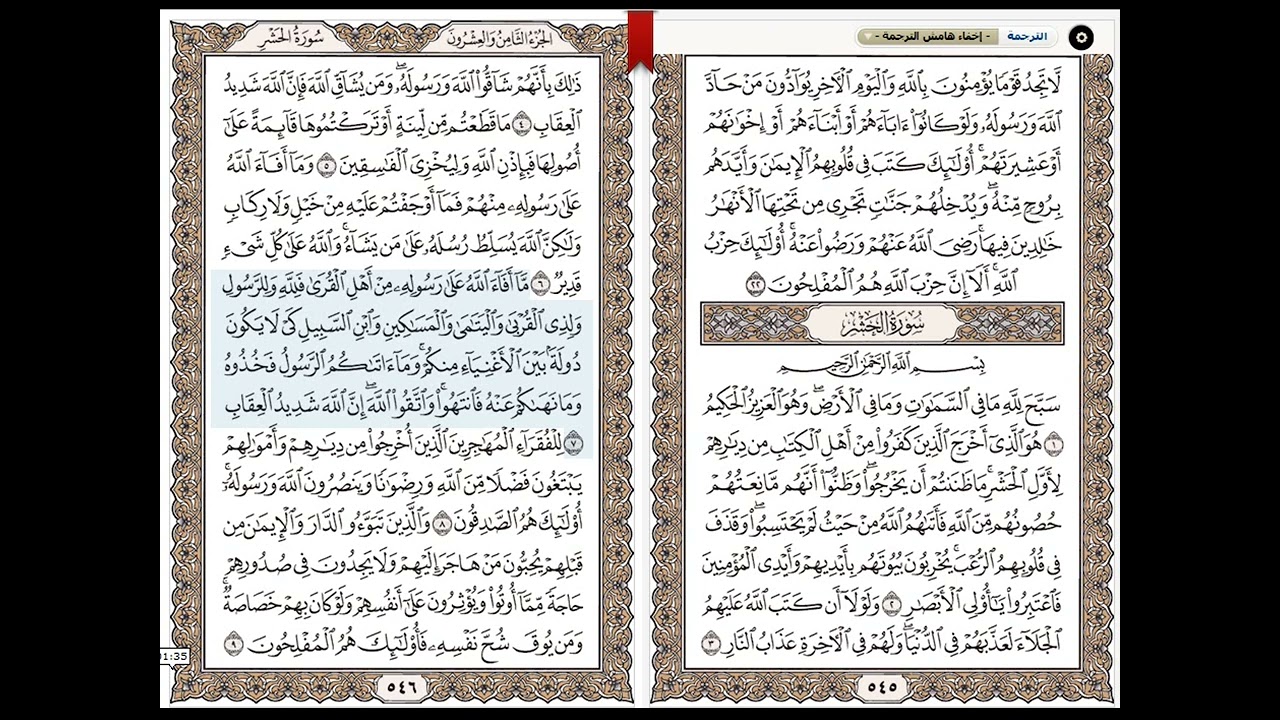 الترجمة
- إخفاء هامش الترجمة -
لَّا تَجِدُ قَوْمًا يُؤْمِنُونَ بِاللَّهِ وَالْيَوْمِ الْآخِرِ يُوَآدُّونَ مَنْ حَآدَّ
اللَّهَ وَرَسُولَهُ وَلَوْ كَانُوٓا۟ ءَابَآءَهُمْ أَوْ أَبْنَآءَهُمْ أَوْ إِخْوَٰنَهُمْ
أَوْ عَشِيرَتَهُمْ ۚ أُو۟لَٰٓئِكَ كَتَبَ فِى قُلُوبِهِمُ الْإِيمَٰنَ وَأَيَّدَهُم
بِرُوحٍ مِّنْهُ ۖ وَيُدْخِلُهُمْ جَنَّٰتٍ تَجْرِى مِن تَحْتِهَا الْأَنْهَٰرُ
خَٰلِدِينَ فِيهَا ۚ رَضِىَ اللَّهُ عَنْهُمْ وَرَضُوا۟ عَنْهُ ۚ أُو۟لَٰٓئِكَ حِزْبُ
اللَّهِ ۚ أَلَآ إِنَّ حِزْبَ اللَّهِ هُمُ الْمُفْلِحُونَ ٢٢
سُورَةُ الحَشْرِ
بِسْمِ اللَّهِ الرَّحْمَٰنِ الرَّحِيمِ
سَبَّحَ لِلَّهِ مَا فِى السَّمَٰوَٰتِ وَمَا فِى الْأَرْضِ ۖ وَهُوَ الْعَزِيزُ الْحَكِيمُ
١ هُوَ الَّذِىٓ أَخْرَجَ الَّذِينَ كَفَرُوا۟ مِنْ أَهْلِ الْكِتَٰبِ مِن دِيَٰرِهِمْ
لِأَوَّلِ الْحَشْرِ ۚ مَا ظَنَنتُمْ أَن يَخْرُجُوا۟ ۖ وَظَنُّوٓا۟ أَنَّهُم مَّانِعَتُهُمْ
حُصُونُهُم مِّنَ اللَّهِ فَأَتَىٰهُمُ اللَّهُ مِنْ حَيْثُ لَمْ يَحْتَسِبُوا۟ ۖ وَقَذَفَ
فِى قُلُوبِهِمُ الرُّعْبَ ۚ يُخْرِبُونَ بُيُوتَهُم بِأَيْدِيهِمْ وَأَيْدِى الْمُؤْمِنِينَ
فَاعْتَبِرُوا۟ يَٰٓأُو۟لِى الْأَبْصَٰرِ ٢ وَلَوْلَآ أَن كَتَبَ اللَّهُ عَلَيْهِمُ
الْجَلَآءَ لَعَذَّبَهُمْ فِى الدُّنْيَا ۖ وَلَهُمْ فِى الْآخِرَةِ عَذَابُ النَّارِ ٣
٥٤٥
الجُزْءُ الثَّامِنُ وَالعِشْرُونَ
سُورَةُ الحَشْرِ
ذَٰلِكَ بِأَنَّهُمْ شَآقُّوا۟ اللَّهَ وَرَسُولَهُ ۖ وَمَن يُشَآقِّ اللَّهَ فَإِنَّ اللَّهَ شَدِيدُ
الْعِقَابِ ٤ مَا قَطَعْتُم مِّن لِّينَةٍ أَوْ تَرَكْتُمُوهَا قَآئِمَةً عَلَىٰٓ
أُصُولِهَا فَبِإِذْنِ اللَّهِ وَلِيُخْزِىَ الْفَٰسِقِينَ ٥ وَمَآ أَفَآءَ اللَّهُ
عَلَىٰ رَسُولِهِۦ مِنْهُمْ فَمَآ أَوْجَفْتُمْ عَلَيْهِ مِنْ خَيْلٍ وَلَا رِكَابٍ
وَلَٰكِنَّ اللَّهَ يُسَلِّطُ رُسُلَهُۥ عَلَىٰ مَن يَشَآءُ ۚ وَاللَّهُ عَلَىٰ كُلِّ شَىْءٍ
قَدِيرٌ ٦ مَّآ أَفَآءَ اللَّهُ عَلَىٰ رَسُولِهِۦ مِنْ أَهْلِ الْقُرَىٰ فَلِلَّهِ وَلِلرَّسُولِ
وَلِذِى الْقُرْبَىٰ وَالْيَتَٰمَىٰ وَالْمَسَٰكِينِ وَابْنِ السَّبِيلِ كَىْ لَا يَكُونَ
دُولَةًۢ بَيْنَ الْأَغْنِيَآءِ مِنكُمْ ۚ وَمَآ ءَاتَىٰكُمُ الرَّسُولُ فَخُذُوهُ
وَمَا نَهَىٰكُمْ عَنْهُ فَانتَهُوا۟ ۚ وَاتَّقُوا۟ اللَّهَ ۖ إِنَّ اللَّهَ شَدِيدُ الْعِقَابِ
٧ لِلْفُقَرَآءِ الْمُهَٰجِرِينَ الَّذِينَ أُخْرِجُوا۟ مِن دِيَٰرِهِمْ وَأَمْوَٰلِهِمْ
يَبْتَغُونَ فَضْلًا مِّنَ اللَّهِ وَرِضْوَٰنًا وَيَنصُرُونَ اللَّهَ وَرَسُولَهُۥٓ ۚ
أُو۟لَٰٓئِكَ هُمُ الصَّٰدِقُونَ ٨ وَالَّذِينَ تَبَوَّءُو الدَّارَ وَالْإِيمَٰنَ مِن
قَبْلِهِمْ يُحِبُّونَ مَنْ هَاجَرَ إِلَيْهِمْ وَلَا يَجِدُونَ فِى صُدُورِهِمْ
حَاجَةً مِّمَّآ أُوتُوا۟ وَيُؤْثِرُونَ عَلَىٰٓ أَنفُسِهِمْ وَلَوْ كَانَ بِهِمْ خَصَاصَةٌ ۚ
وَمَن يُوقَ شُحَّ نَفْسِهِۦ فَأُو۟لَٰٓئِكَ هُمُ الْمُفْلِحُونَ ٩
٥٤٦
1:35